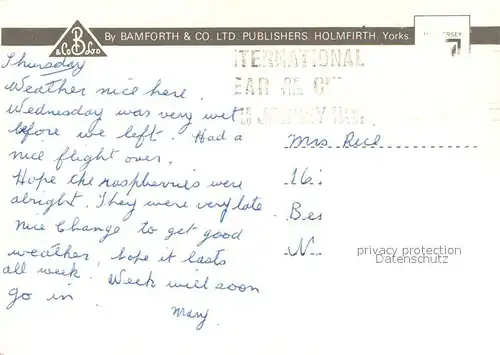 By BAMFORTH & CO. LTD. PUBLISHERS. HOLMFIRTH. Yorks.
B
& Co LTD
Thursday
Weather nice here.
Wednesday was very wet
before we left. Had a
nice flight over.
Hope the raspberries were
alright. They were very late.
Nice Change to get good
weather, hope it lasts
all week. Week will soon
go in.
Mary.
Mrs
16
N
privacy protection
Datenschutz